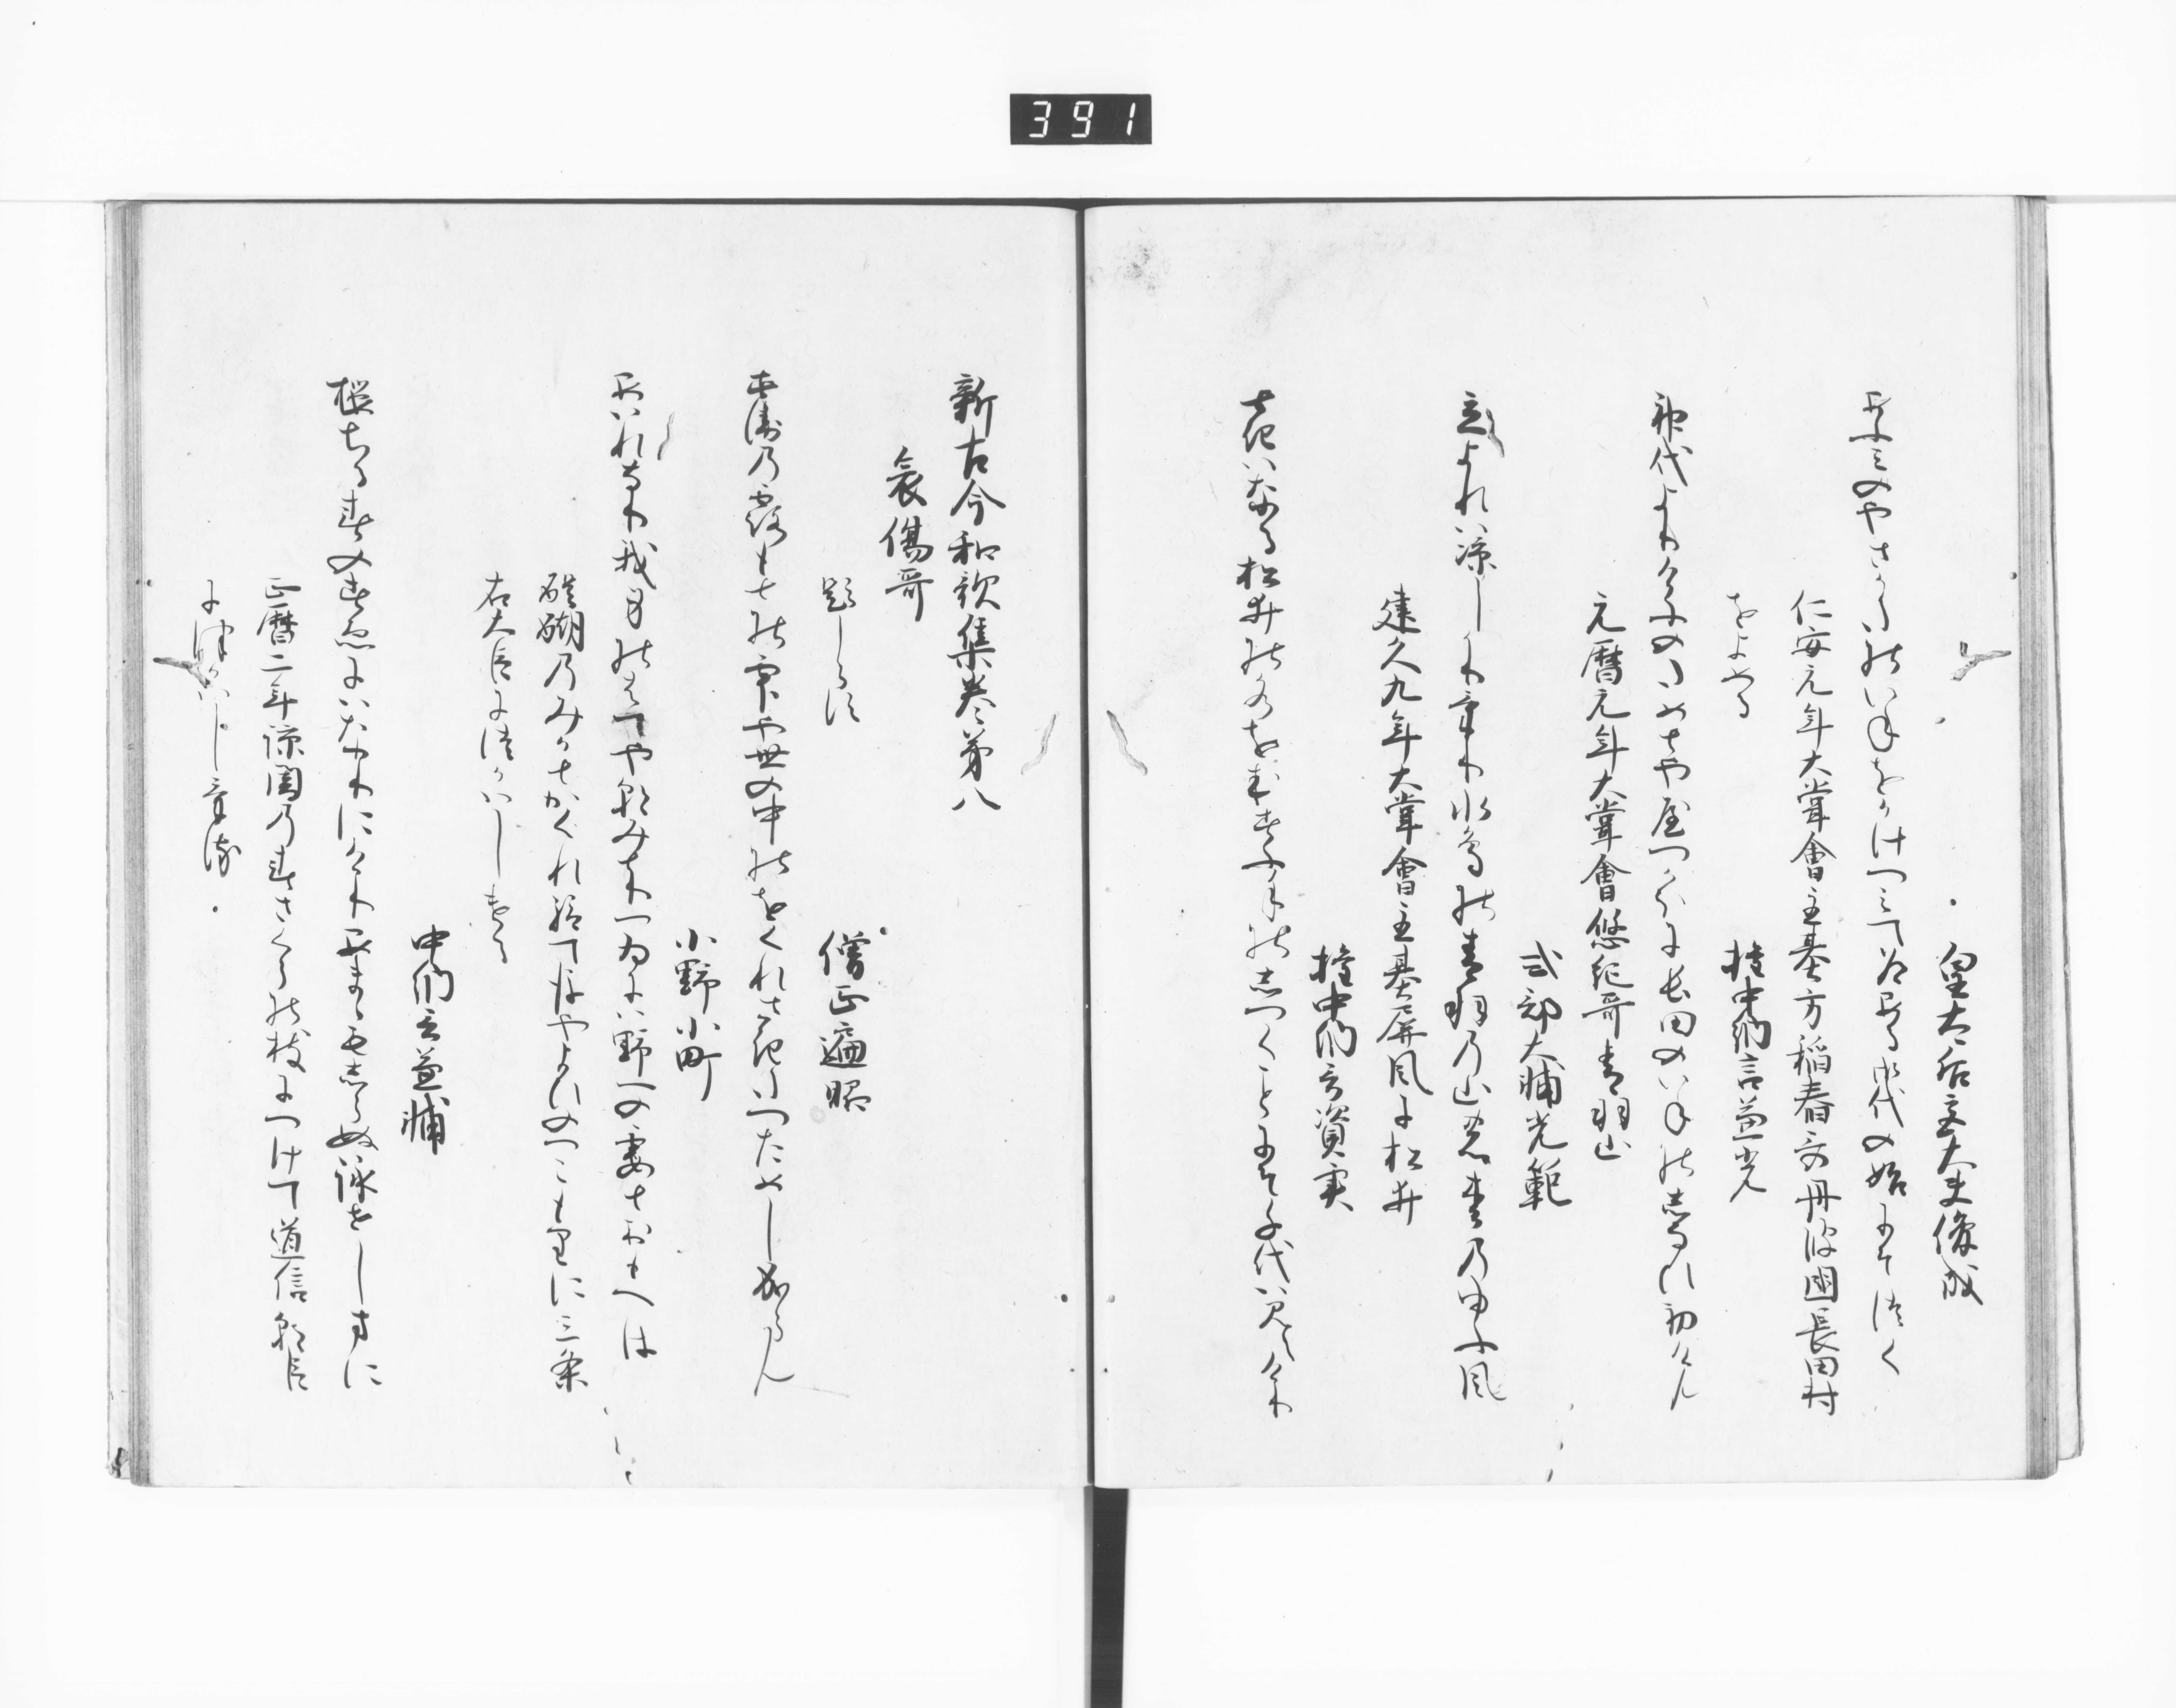 391
皇太后宮大夫俊成
あふみのやさかたのいねをかけつみて道ある御代の始にそつく
仁安元年大嘗會主基方稲舂哥丹波國長田村
をよめる
権中納言兼光
神代よりけふのためとや屋つかほに長田のいねのしなひ初けん
元暦元年大嘗會悠紀哥青羽山
式部大輔光範
立よれは凉しかりけり水鳥の青羽の山の松の夕風
建久九年大嘗會主基屏風に松井
権中納言資実
ときはなる松井の水をむすふ手のしつくことにそ千代は見えける
新古今和歌集巻第八
哀傷哥
題しらす
僧正遍昭
末の露もとの雫や世の中のをくれさきたつためしなるらん
小野小町
あはれなり我身のはてや朝みとりつゐには野への霞とおもへは
醍醐のみかとかくれ給て後やよひのつこもりに三条
右大臣につかはしける
中納言兼輔
桜ちる春の末にはなりにけりあまゝもしらぬ詠せしまに
正暦二年諒闇の春さくらの枝につけて道信朝臣
につかはしける